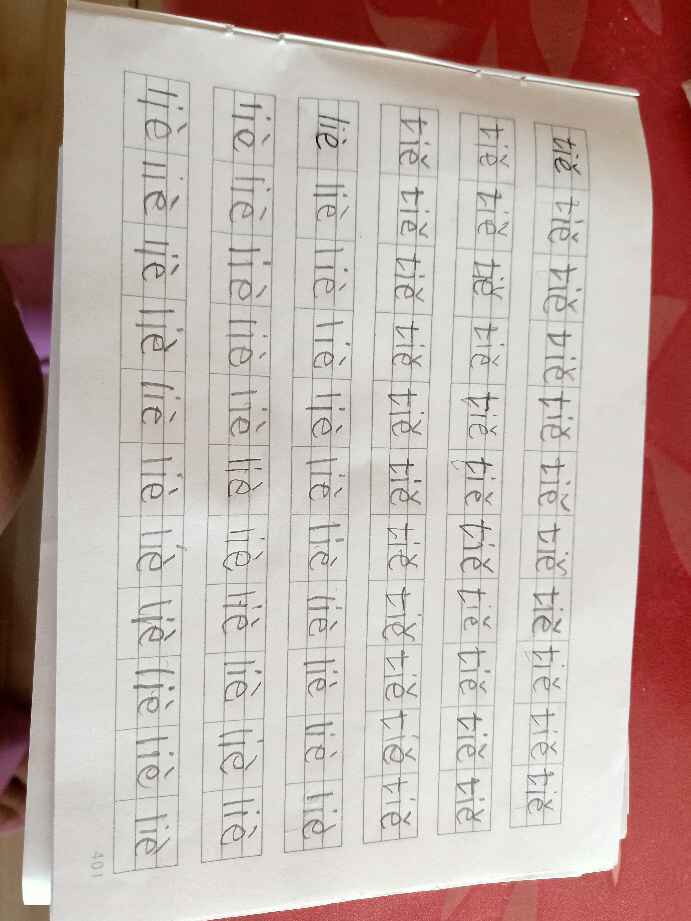 tiě tiě tiě tiě tiě tiě tiě tiě tiě tiě tiě
tiě tiě tiě tiě tiě tiě tiě tiě tiě tiě tiě
tiě tiě tiě tiě tiě tiě tiě tiě tiě tiě tiě
liè liè liè liè liè liè liè liè liè liè liè
liè liè liè liè liè liè liè liè liè liè liè
liè liè liè liè liè liè liè liè liè liè liè
401